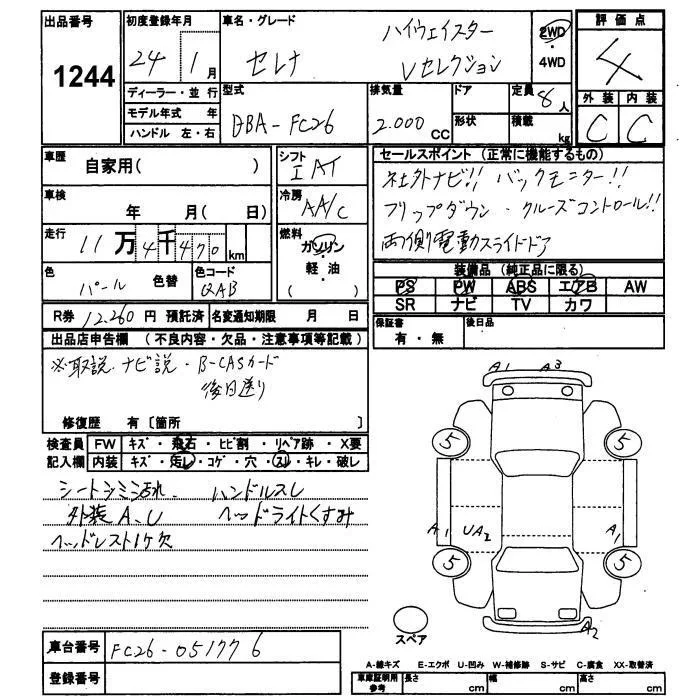 出品番号 1244
初度登録年月 24 1月
車名・グレード セレナ ハイウェイスター Vセレクション
2WD・4WD
評価点 4
ディーラー・並行
モデル年式 年
ハンドル 左・右
型式 DBA-FC26
排気量 2.000 CC
ドア
形状
定員 8人
積載 kg
外装 内装
C C
車歴 自家用( )
シフト I AT
車検 年 月( 日)
冷房 AA/C
走行 11万4千470km
燃料 ガソリン・軽油( )
色 パール 色替
色コード QAB
R券 12.260円 預託済 名変通知期限 月 日
セールスポイント(正常に機能するもの)
社外ナビ!! バックモニター!!
フリップダウン・クルーズコントロール!!
両側電動スライドドア
装備品(純正品に限る)
PS PW ABS エアB AW
SR ナビ TV カワ
保証書 有・無
後日品
出品店申告欄(不良内容・欠品・注意事項等記載)
※取説 ナビ説・B-CASカード
後日送り
修復歴 有〔箇所 〕
検査員記入欄
FW キズ・飛石・ヒビ割・リペア跡・X要
内装 キズ・汚レ・コゲ・穴・スレ・キレ・破レ
シートシミ汚れ ハンドルスレ
外装A.U ヘッドライトくすみ
ヘッドレスト1ケ欠
A1 A3
5 5
A1 UA2 A1
5 5
A2
スペア
車台番号 FC26-051776
登録番号
A-線キズ E-エクボ U-凹み W-補修跡 S-サビ C-腐食 XX-取替済
車庫証明用参考 長さ cm 幅 cm 高さ cm